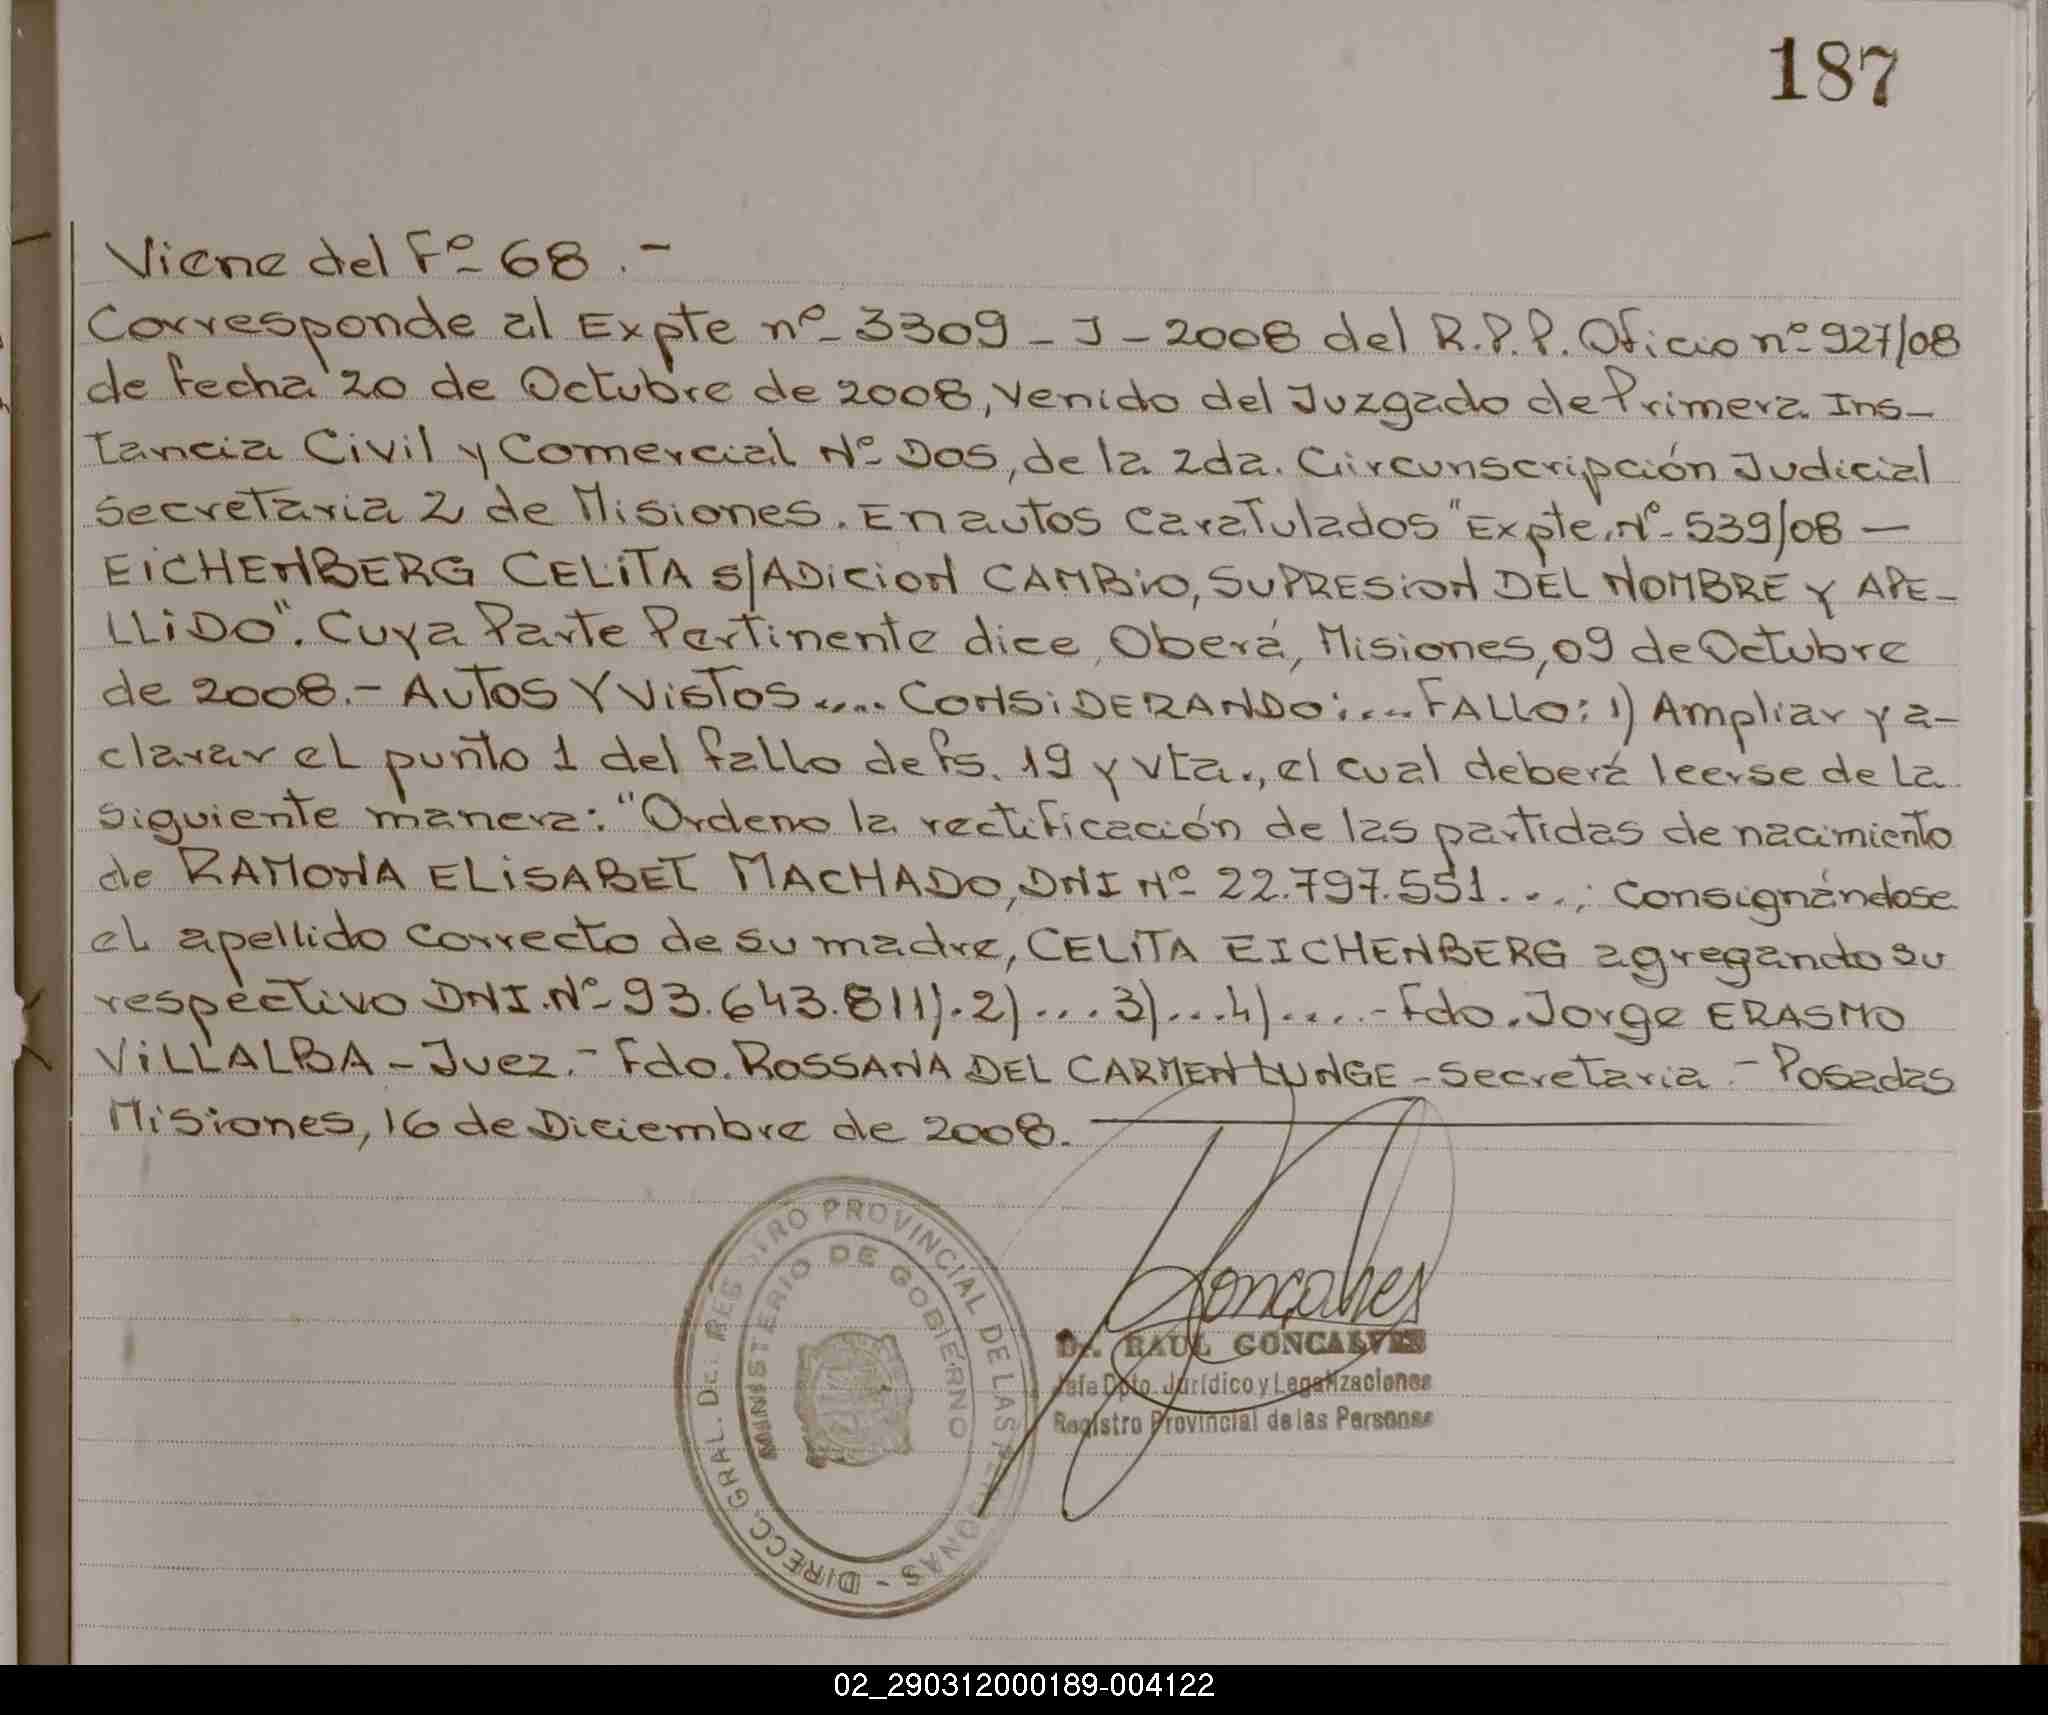 187
Viene del Fº 68.-
Corresponde al Expte nº 3309-J-2008 del R.P.P. Oficio nº 927/08
de fecha 20 de Octubre de 2008, venido del Juzgado de Primera Ins-
tancia Civil y Comercial Nº Dos, de la 2da. Circunscripción Judicial
secretaria 2 de Misiones. En autos caratulados "Expte. Nº 539/08 —
EICHENBERG CELITA S/ADICION CAMBIO, SUPRESION DEL NOMBRE Y APE-
LLIDO". Cuya Parte Pertinente dice, Oberá, Misiones, 09 de Octubre
de 2008.- AUTOS Y VISTOS.... CONSIDERANDO:... FALLO: 1) Ampliar y a-
clarar el punto 1 del fallo de fs. 19 y vta., el cual deberá leerse de la
siguiente manera: "Ordeno la rectificación de las partidas de nacimiento
de RAMONA ELISABET MACHADO, DNI Nº 22.797.551...; consignándose
el apellido correcto de su madre, CELITA EICHENBERG agregando su
respectivo DNI. Nº 93.643.811).2)....3)...4)....- Fdo. Jorge ERASMO
VILLALBA - Juez.- Fdo. ROSSANA DEL CARMEN LUNGE - secretaria.- Posadas
Misiones, 16 de Diciembre de 2008.
DIRECC. GRAL. DEL REGISTRO PROVINCIAL DE LAS PERSONAS -
MINISTERIO DE GOBIERNO
Goncalves
Dr. RAUL GONCALVES
Jefe Dpto. Jurídico y Legalizaciones
Registro Provincial de las Personas
02_290312000189-004122